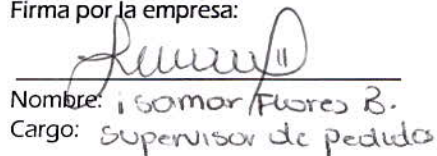 Firma por la empresa:
Nombre: isamar Flores B.
Cargo: Supervisor de pedidos